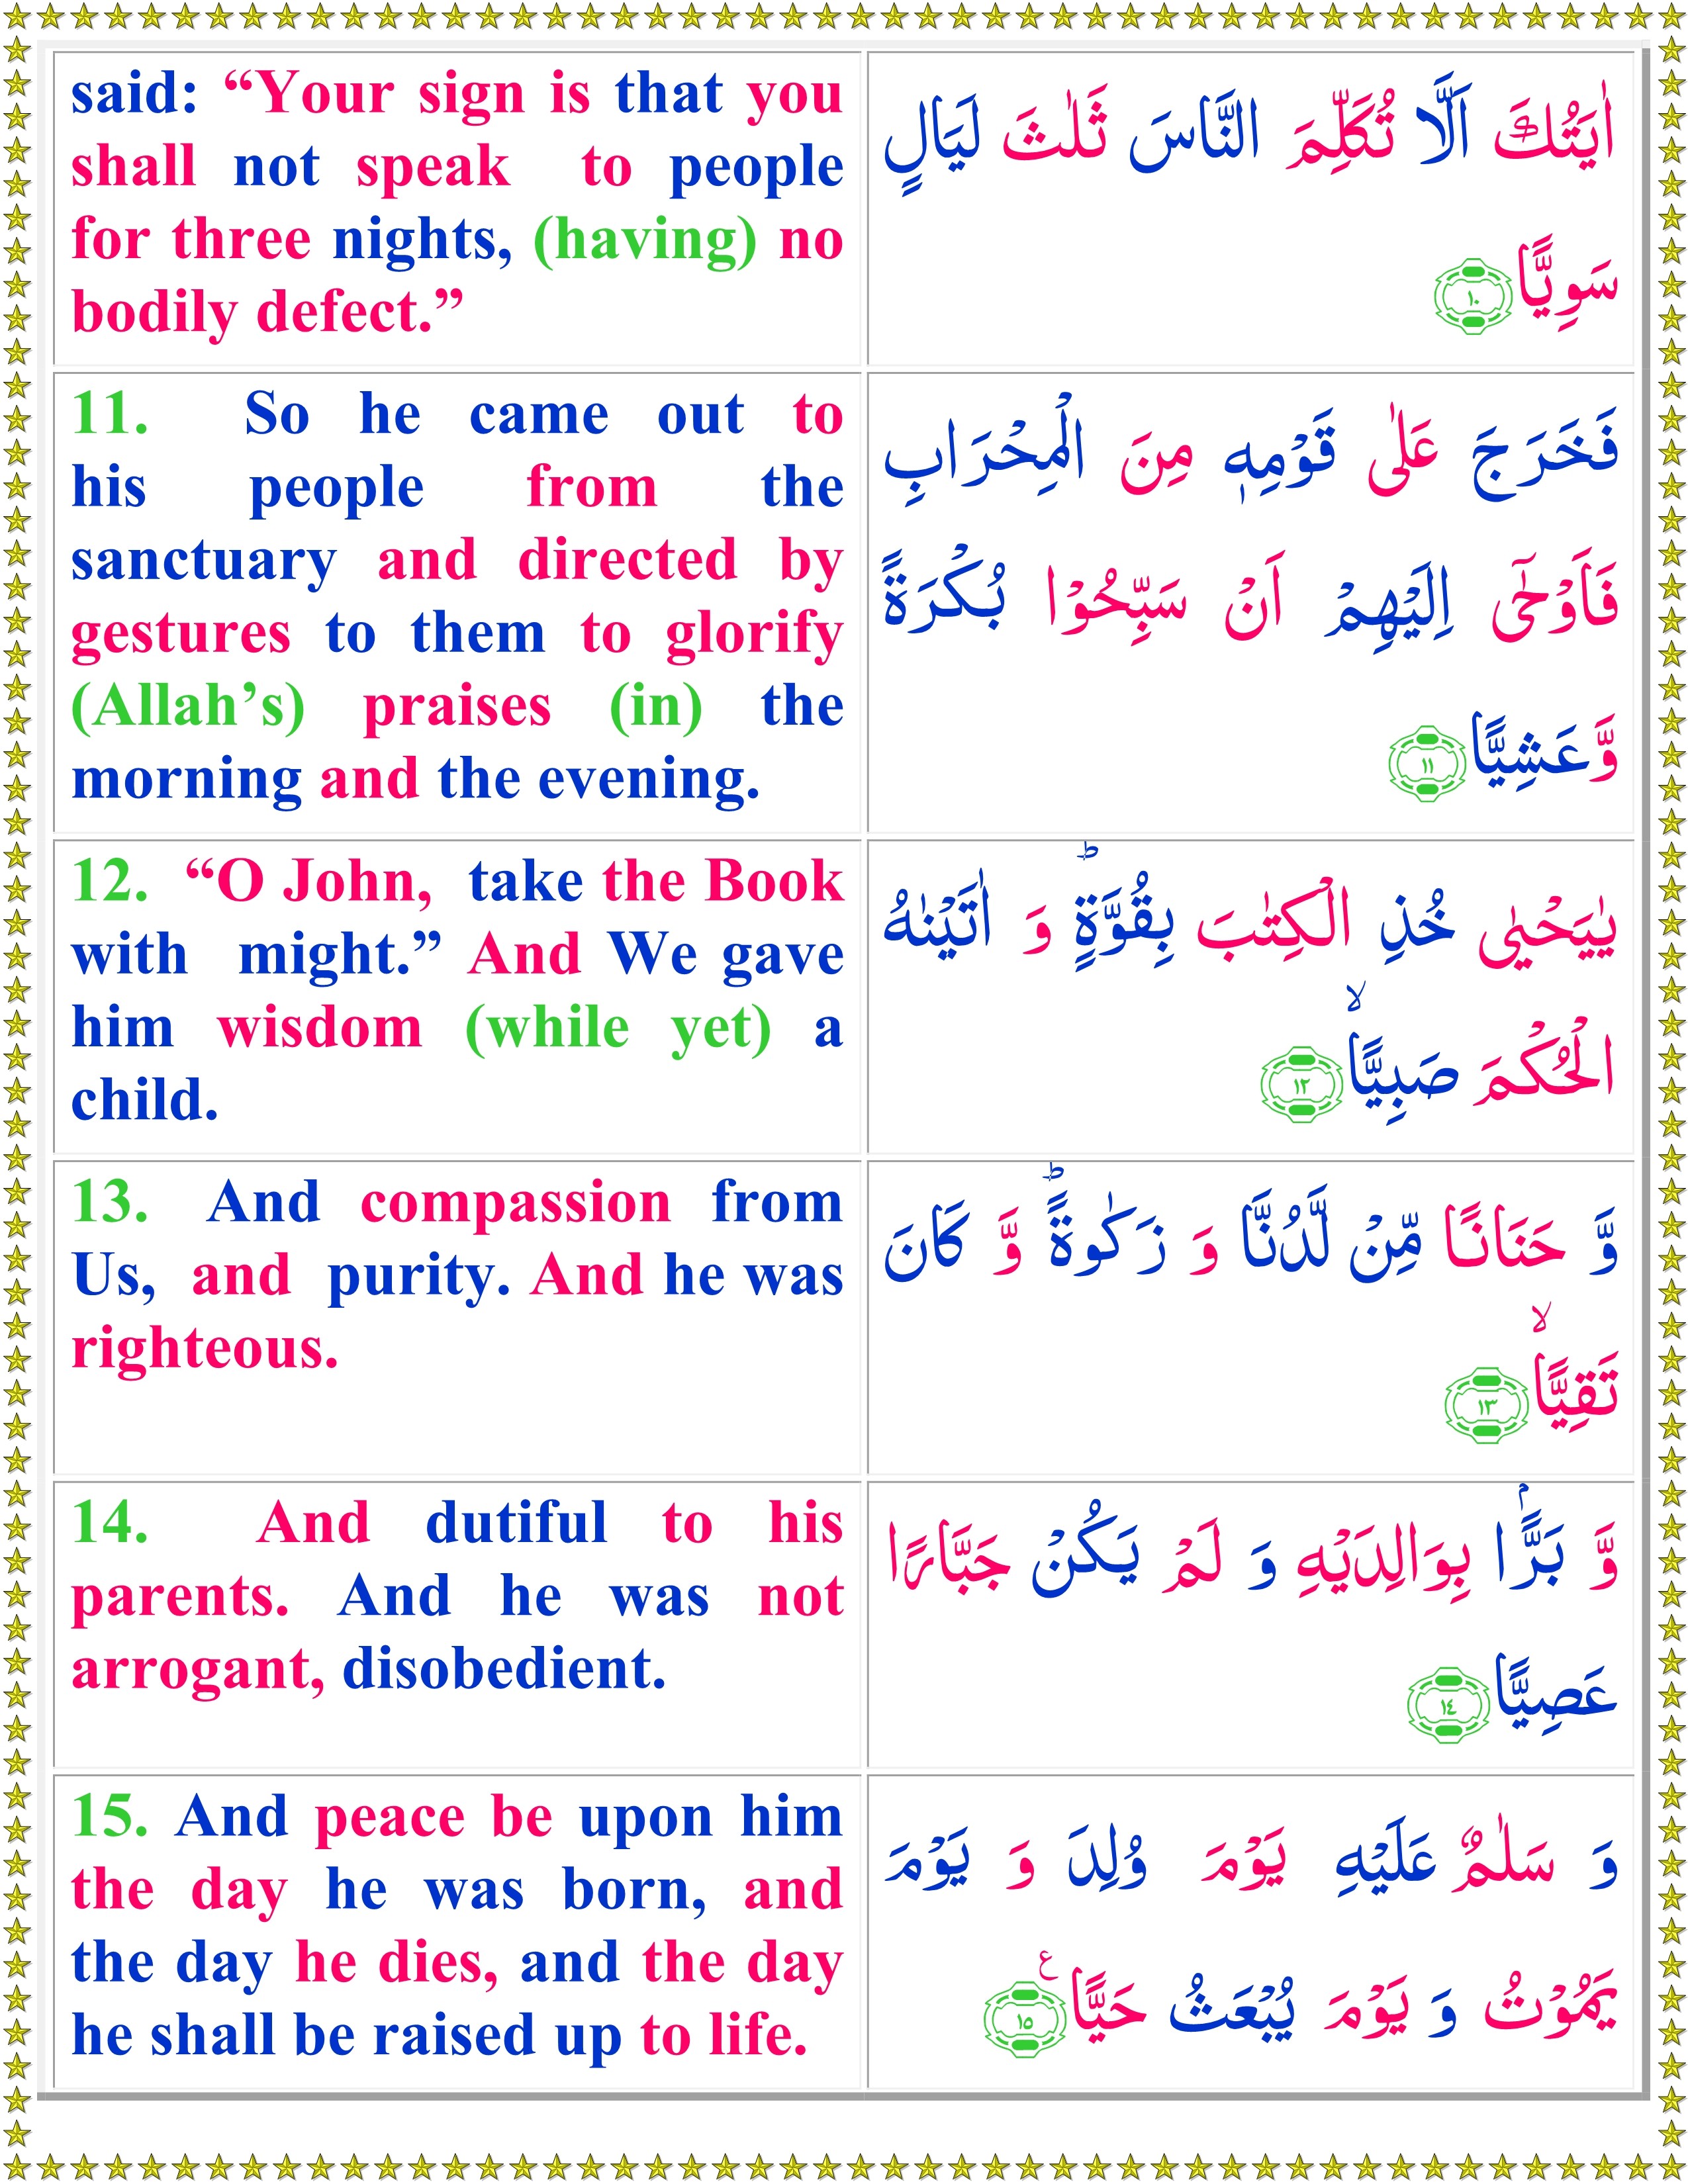 said: “Your sign is that you
shall not speak to people
for three nights, (having) no
bodily defect.”
اٰيَتُكَ اَلَّا تُكَلِّمَ النَّاسَ ثَلٰثَ لَيَالٍ
سَوِيًّا ١٠
11. So he came out to
his people from the
sanctuary and directed by
gestures to them to glorify
(Allah’s) praises (in) the
morning and the evening.
فَخَرَجَ عَلٰى قَوْمِهٖ مِنَ الْمِحْرَابِ
فَاَوْحٰٓى اِلَيْهِمْ اَنْ سَبِّحُوْا بُكْرَةً
وَّعَشِيًّا ١١
12. “O John, take the Book
with might.” And We gave
him wisdom (while yet) a
child.
يٰيَحْيٰى خُذِ الْكِتٰبَ بِقُوَّةٍ ؕ وَ اٰتَيْنٰهُ
الْحُكْمَ صَبِيًّا ۙ ١٢
13. And compassion from
Us, and purity. And he was
righteous.
وَّ حَنَانًا مِّنْ لَّدُنَّا وَ زَكٰوةً ؕ وَّ كَانَ
تَقِيًّا ۙ ١٣
14. And dutiful to his
parents. And he was not
arrogant, disobedient.
وَّ بَرًّۢا بِوَالِدَيْهِ وَ لَمْ يَكُنْ جَبَّارًا
عَصِيًّا ١٤
15. And peace be upon him
the day he was born, and
the day he dies, and the day
he shall be raised up to life.
وَ سَلٰمٌ عَلَيْهِ يَوْمَ وُلِدَ وَ يَوْمَ
يَمُوْتُ وَ يَوْمَ يُبْعَثُ حَيًّا ع ١٥